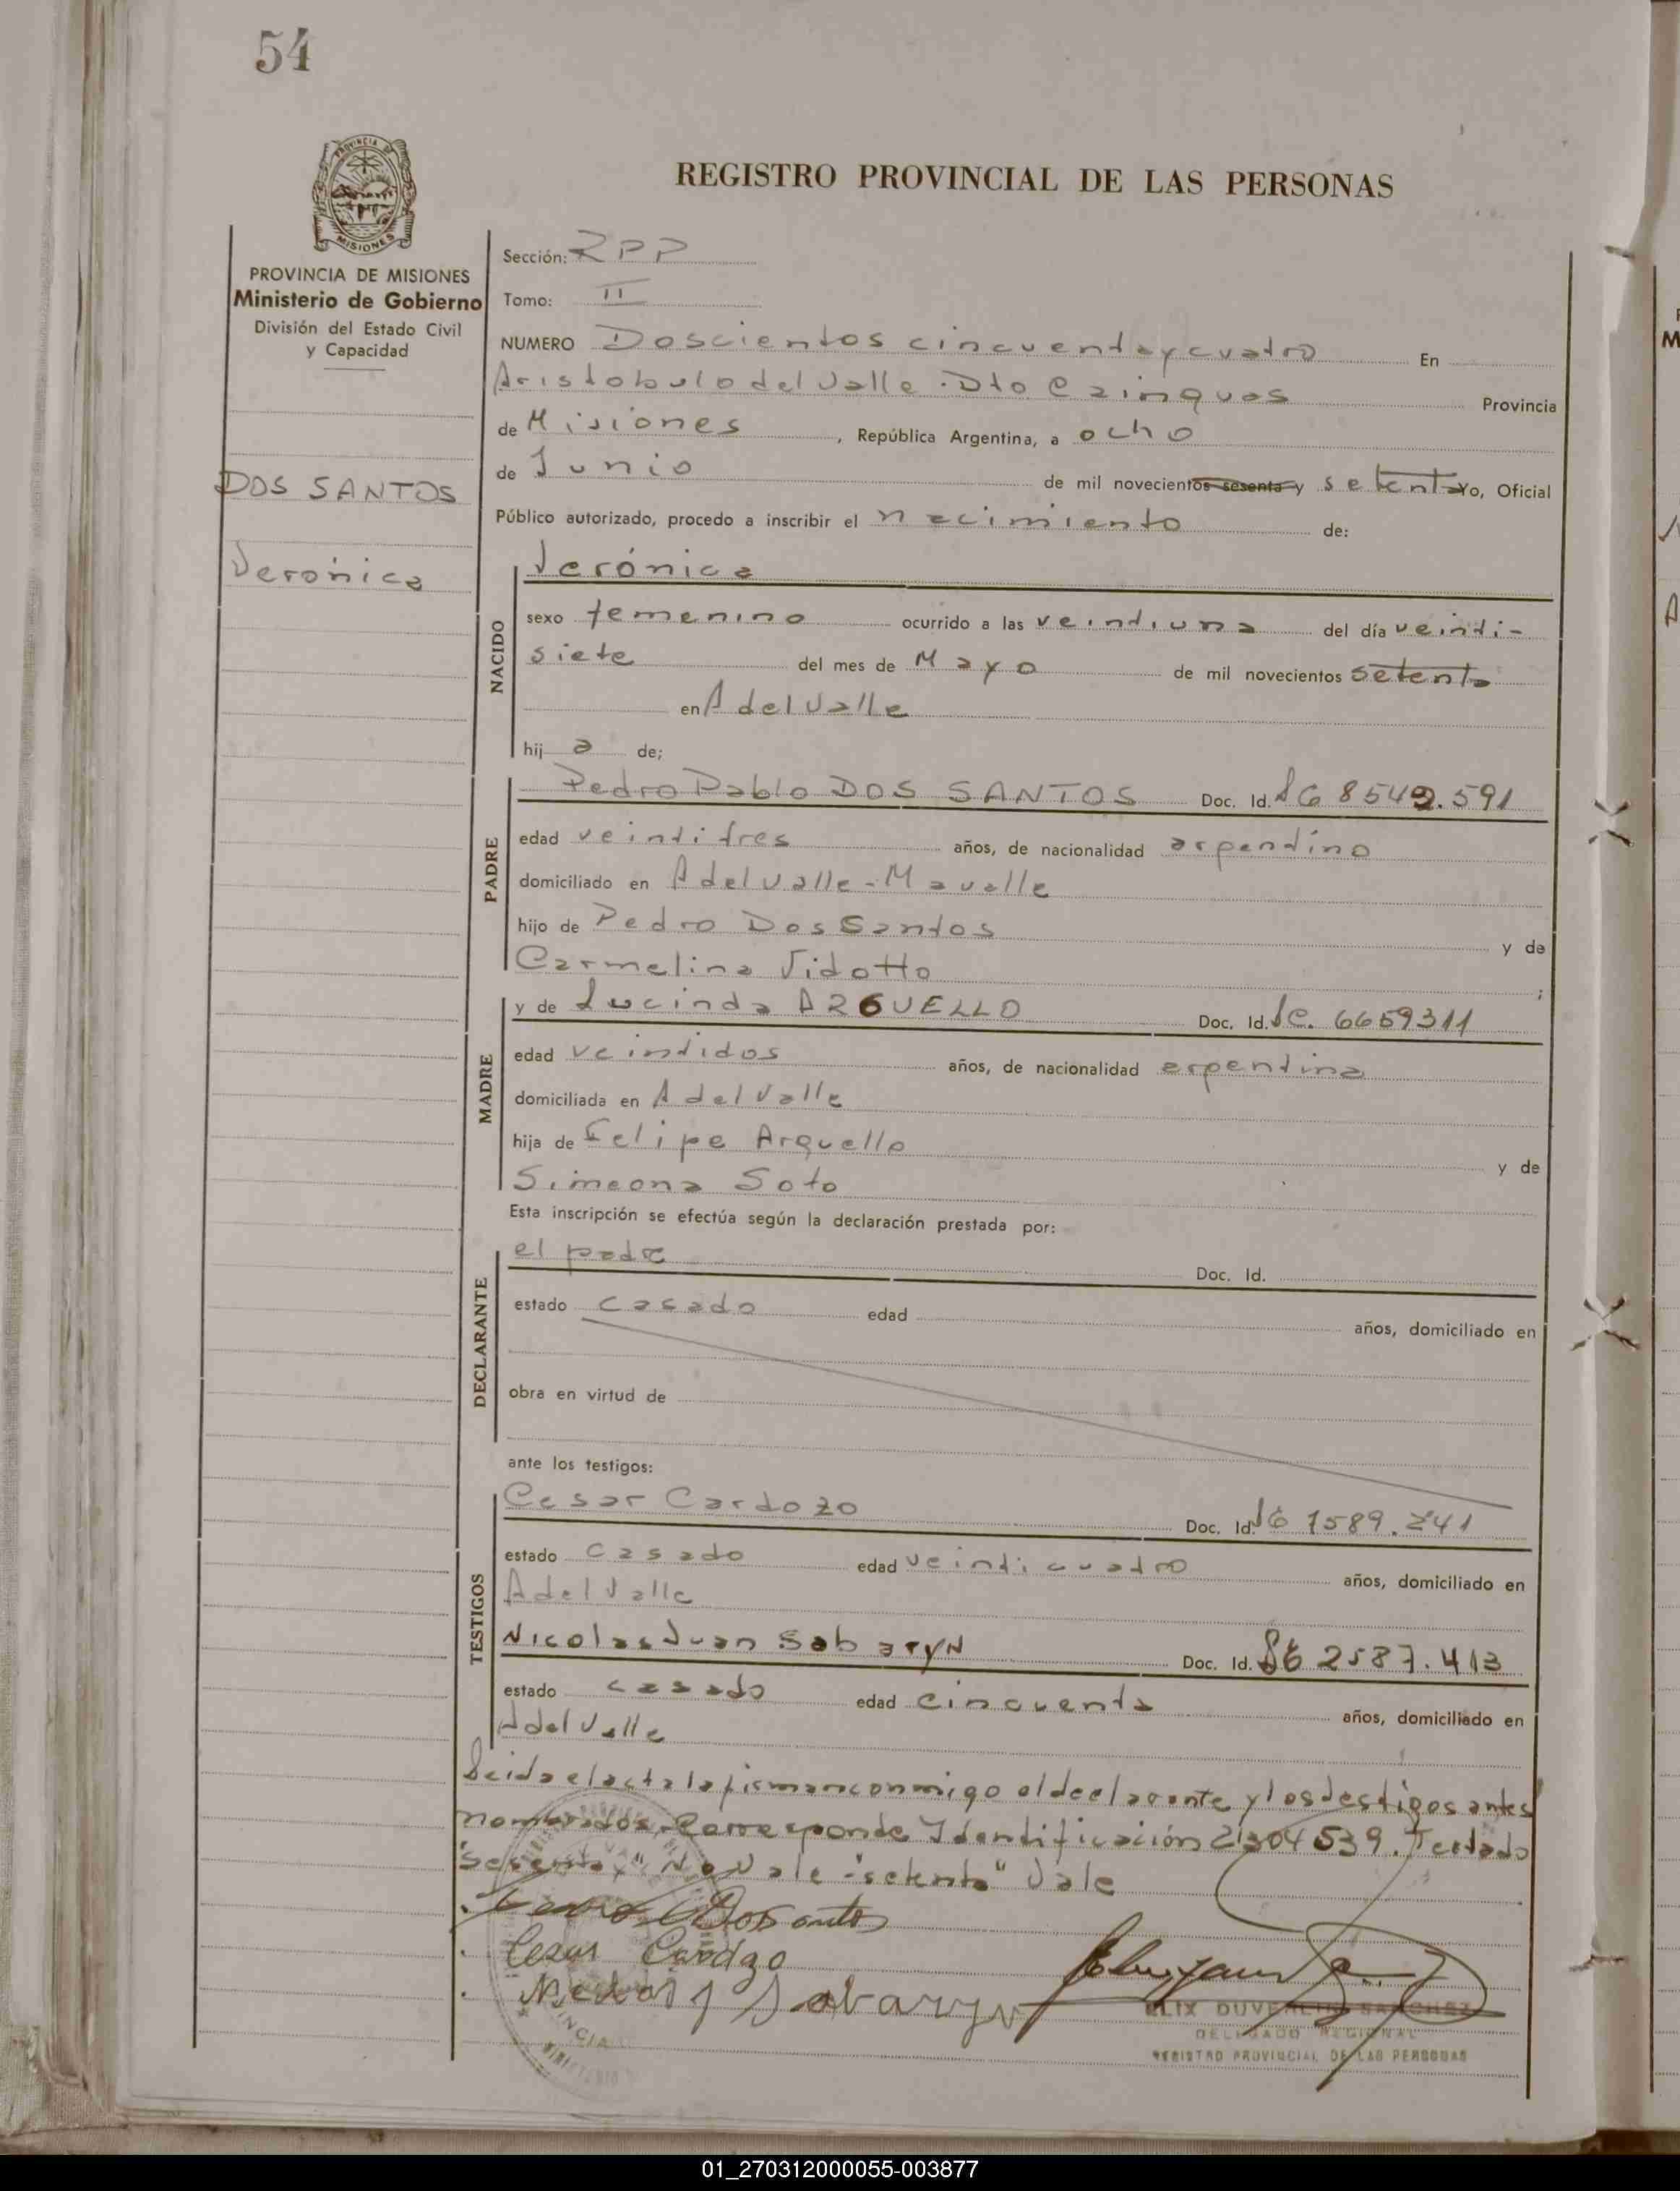 54
PROVINCIA DE
MISIONES
REGISTRO PROVINCIAL DE LAS PERSONAS
PROVINCIA DE MISIONES
Ministerio de Gobierno
División del Estado Civil
y Capacidad
DOS SANTOS
Verónica
Sección: RPP
Tomo: II
NUMERO Doscientos cincuenta y cuatro En
Aristobulo del Valle . Dto Cainguas Provincia
de Misiones , República Argentina, a ocho
de Junio de mil novecientos sesenta y setenta Yo, Oficial
Público autorizado, procedo a inscribir el nacimiento de:
NACIDO
Verónica
sexo femenino ocurrido a las veintiuna del día veinti-
siete del mes de Mayo de mil novecientos setenta
en A del Valle
hij a de;
PADRE
Pedro Pablo DOS SANTOS Doc. Id. LE 8542.591
edad veintitres años, de nacionalidad argentino
domiciliado en A del Valle - Mavalle
hijo de Pedro Dos Santos y de
Carmelina Vidotto ;
MADRE
y de Lucinda ARGUELLO Doc. Id. LC. 6659311
edad veintidos años, de nacionalidad argentina
domiciliada en A del Valle
hija de Felipe Arguello y de
Simeona Soto
Esta inscripción se efectúa según la declaración prestada por:
DECLARANTE
el padre Doc. Id.
estado casado edad años, domiciliado en
obra en virtud de
ante los testigos:
TESTIGOS
Cesar Cardozo Doc. Id. LE 7589.241
estado casado edad veinticuatro años, domiciliado en
A del Valle
Nicolas Juan Sabaryn Doc. Id. LE 2587.413
estado casado edad cincuenta años, domiciliado en
A del Valle
Leida el acta la firman conmigo el declarante y los testigos antes
nombrados. Corresponde Identificación 21304539. Testado
"sesenta y" No Vale - "setenta" Vale
Dos Santos
Cesar Cardozo
Nicolas J Sabaryn
DUVE SANCHEZ
DELEGADO REGIONAL
REGISTRO PROVINCIAL DE LAS PERSONAS
01_270312000055-003877